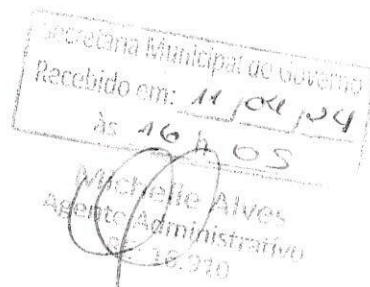 Secretaria Municipal de Governo
Recebido em: 11/04/24
às 16 h 05
Michelle Alves
Agente Administrativo
16.910